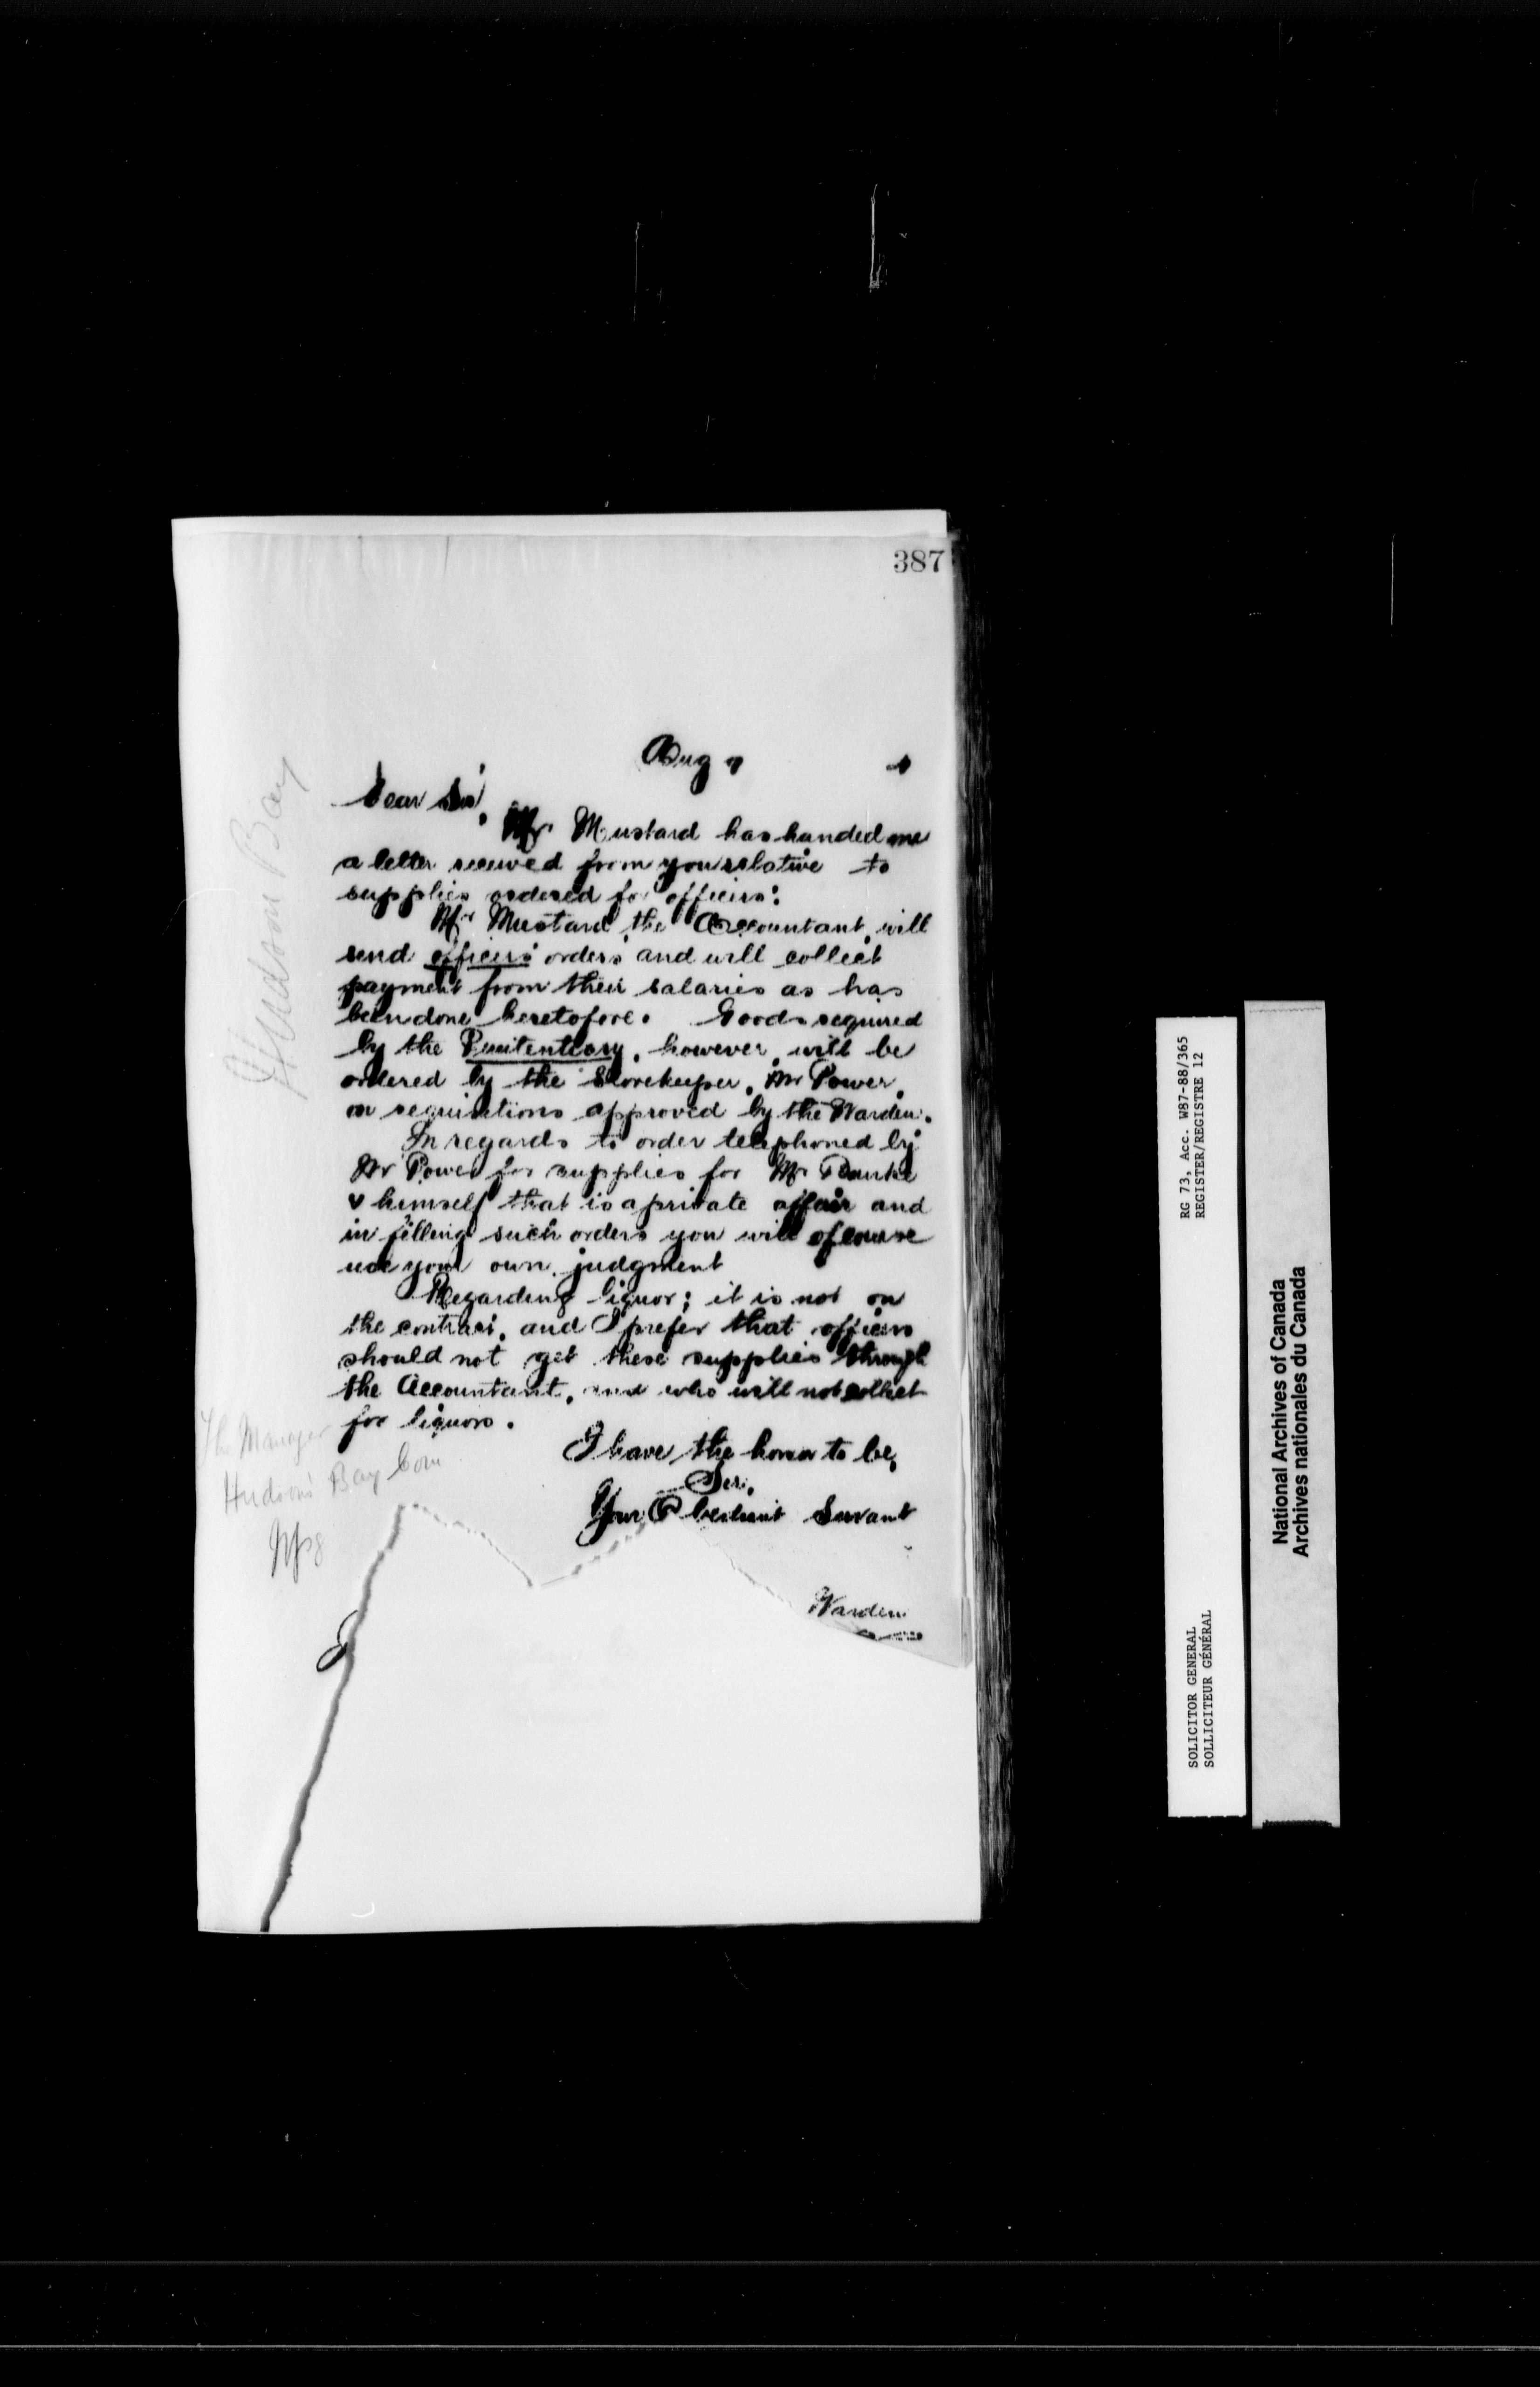 387
Hudson Bay
Aug 7
Dear Sir,
Mr. Mustard has handed me
a letter received from you relative to
supplies ordered for officers.
Mr Mustard, the Accountant, will
send officers' orders and will collect
payment from their salaries as has
been done heretofore. Goods required
by the Penitentiary, however, will be
ordered by the Storekeeper, Mr Power,
on requisitions approved by the Warden.
In regards to order telephoned by
Mr Power for supplies for Mr
& himself that is a private affair and
in filling such orders you will of course
use your own judgment
Regarding liquor; it is not on
the contract, and I prefer that officers
should not get these supplies through
the Accountant, and who will not collect
for liquors.
I have the honor to be,
Sir,
Your Obedient Servant
Warden
The Manager
Hudson's Bay Com
Wpg
RG 73, Acc. W87-88/365
REGISTER/REGISTRE 12
SOLICITOR GENERAL
SOLLICITEUR GÉNÉRAL
National Archives of Canada
Archives nationales du Canada